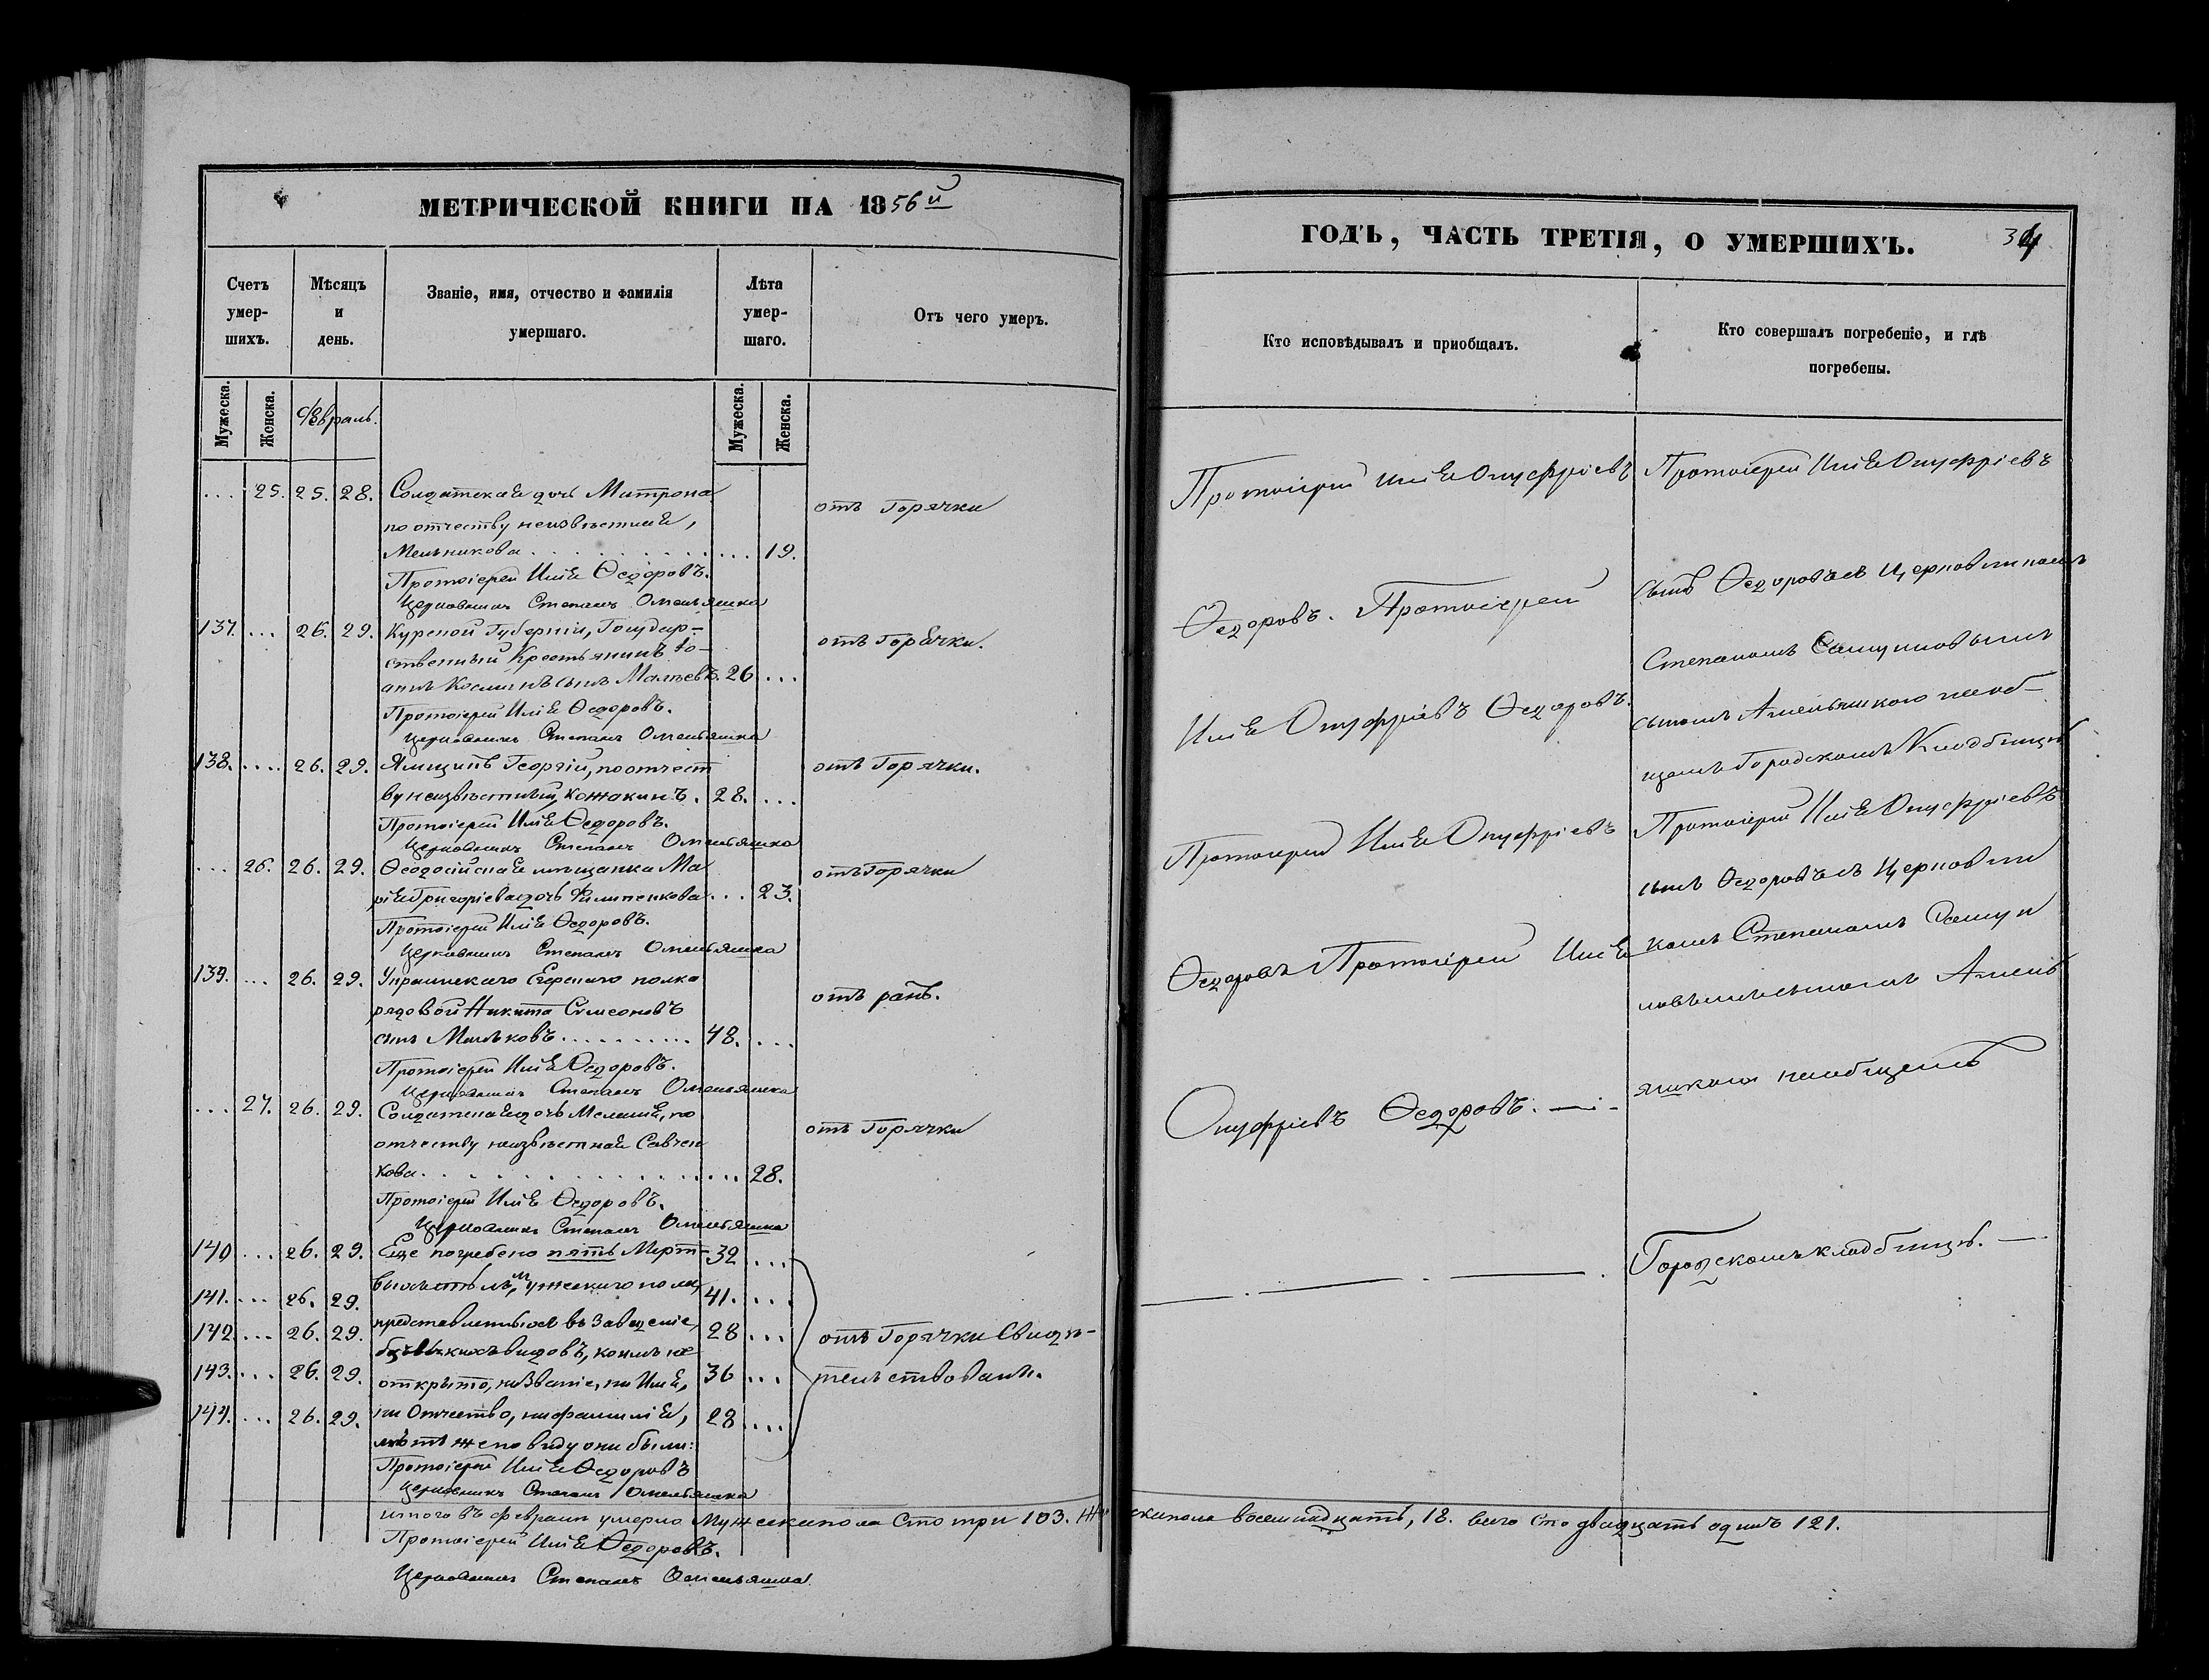 МЕТРИЧЕСКОЙ КНИГИ НА 1856й
Счетъ умер-шихъ.
Мѣсяцъ и день.
Званіе, имя, отчество и фамилія умершаго.
Лѣта умер-шаго.
Отъ чего умеръ.
Мужеска.
Женска.
Февраль.
Мужеска.
Женска.
... 25. 25. 28. Солдатская дочь Матрона
по отчеству неизвѣстная,
Мельникова ... 19.
отъ Горячки
Протоіерей Илія Ѳедоровъ.
Церковникъ Степанъ Омельяшко
137. ... 26. 29. Курской Губерніи, Государ-
ственный Крестьянинъ Іо-
аннъ Косминъ сынъ Малѣевъ. 26 ...
отъ Горячки.
Протоіерей Илія Ѳедоровъ.
Церковникъ Степанъ Омельяшко
138. ... 26. 29. Ямщикъ Георгій, по отчест
ву неизвѣстный, Кожакинъ. 28. ...
отъ Горячки.
Протоіерей Илія Ѳедоровъ.
Церковникъ Степанъ Омельяшко
... 26. 26. 29. Ѳеодосійская мѣщанка Ма
рія Григоріева дочь Филипенкова ... 23.
отъ Горячки
Протоіерей Илія Ѳедоровъ.
Церковникъ Степанъ Омельяшко
139. ... 26. 29. Украинскаго Егерскаго полка
рядовой Никита Симеоновъ
сынъ Мальковъ 48. ...
отъ ранъ.
Протоіерей Илія Ѳедоровъ.
Церковникъ Степанъ Омельяшко
... 27. 26. 29. Солдатская дочь Меланія, по
отчеству неизвѣстная Савчен
кова ... 28.
отъ Горячки
Протоіерей Илія Ѳедоровъ.
Церковникъ Степанъ Омельяшко
140 ... 26. 29. Еще погребено пять Мерт- 32 ...
выхъ тѣлъ, мужескаго пола,
141. ... 26. 29. 41. ...
представленныхъ въ Заведеніе,
142 ... 26. 29. 28 ...
безъ всякихъ видовъ, коимъ не
143. ... 26. 29. открыто, ни Званіе, ни Имя, 36 ...
144. ... 26. 29. ни Отчество, ни фамилія, 28 ...
лѣтъ же по виду они были:
отъ Горячки Свидѣ-
тельствованы.
Протоіерей Илія Ѳедоровъ
Церковникъ Степанъ Омельяшко
итого въ февралѣ умерло Мужеска пола Сто три 103. Женска пола восемнадцать, 18. всего Сто двадцать одинъ 121.
Протоіерей Илія Ѳедоровъ.
Церковникъ Степанъ Омельяшко
ГОДЪ, ЧАСТЬ ТРЕТІЯ, О УМЕРШИХЪ.
Кто исповѣдывалъ и пріобщалъ.
Кто совершалъ погребеніе, и гдѣ погребены.
Протоіерей Илія Онуфріевъ
Ѳедоровъ. Протоіерей
Илія Онуфріевъ Ѳедоровъ.
Протоіерей Илія Онуфріевъ
Ѳедоровъ Протоіерей Илія
Онуфріевъ Ѳедоровъ.
Протоіерей Илія Онуфріевъ
сынъ Ѳедоровъ съ Церковникомъ
Степаномъ Самуиловымъ
сыномъ Амельяшкою на об-
щемъ Городскомъ Кладбищѣ
Протоіерей Илія Онуфріевъ
сынъ Ѳедоровъ съ Церковни
комъ Степаномъ Самуи
ловымъ сыномъ Амель
яшкою на общемъ
Городскомъ кладбищѣ.